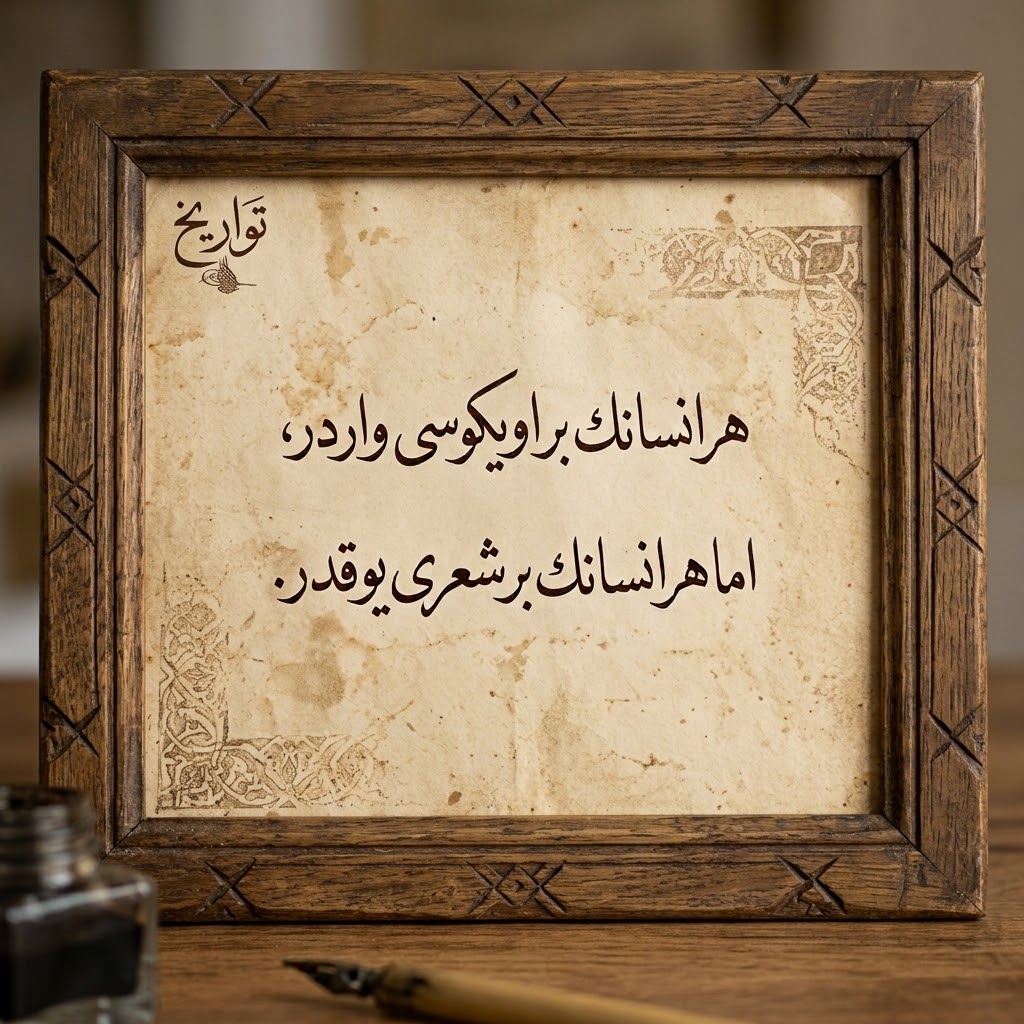 تَواريخ
هر انسانك بر اويكوسی واردر،
اما هر انسانك بر شعری يوقدر.